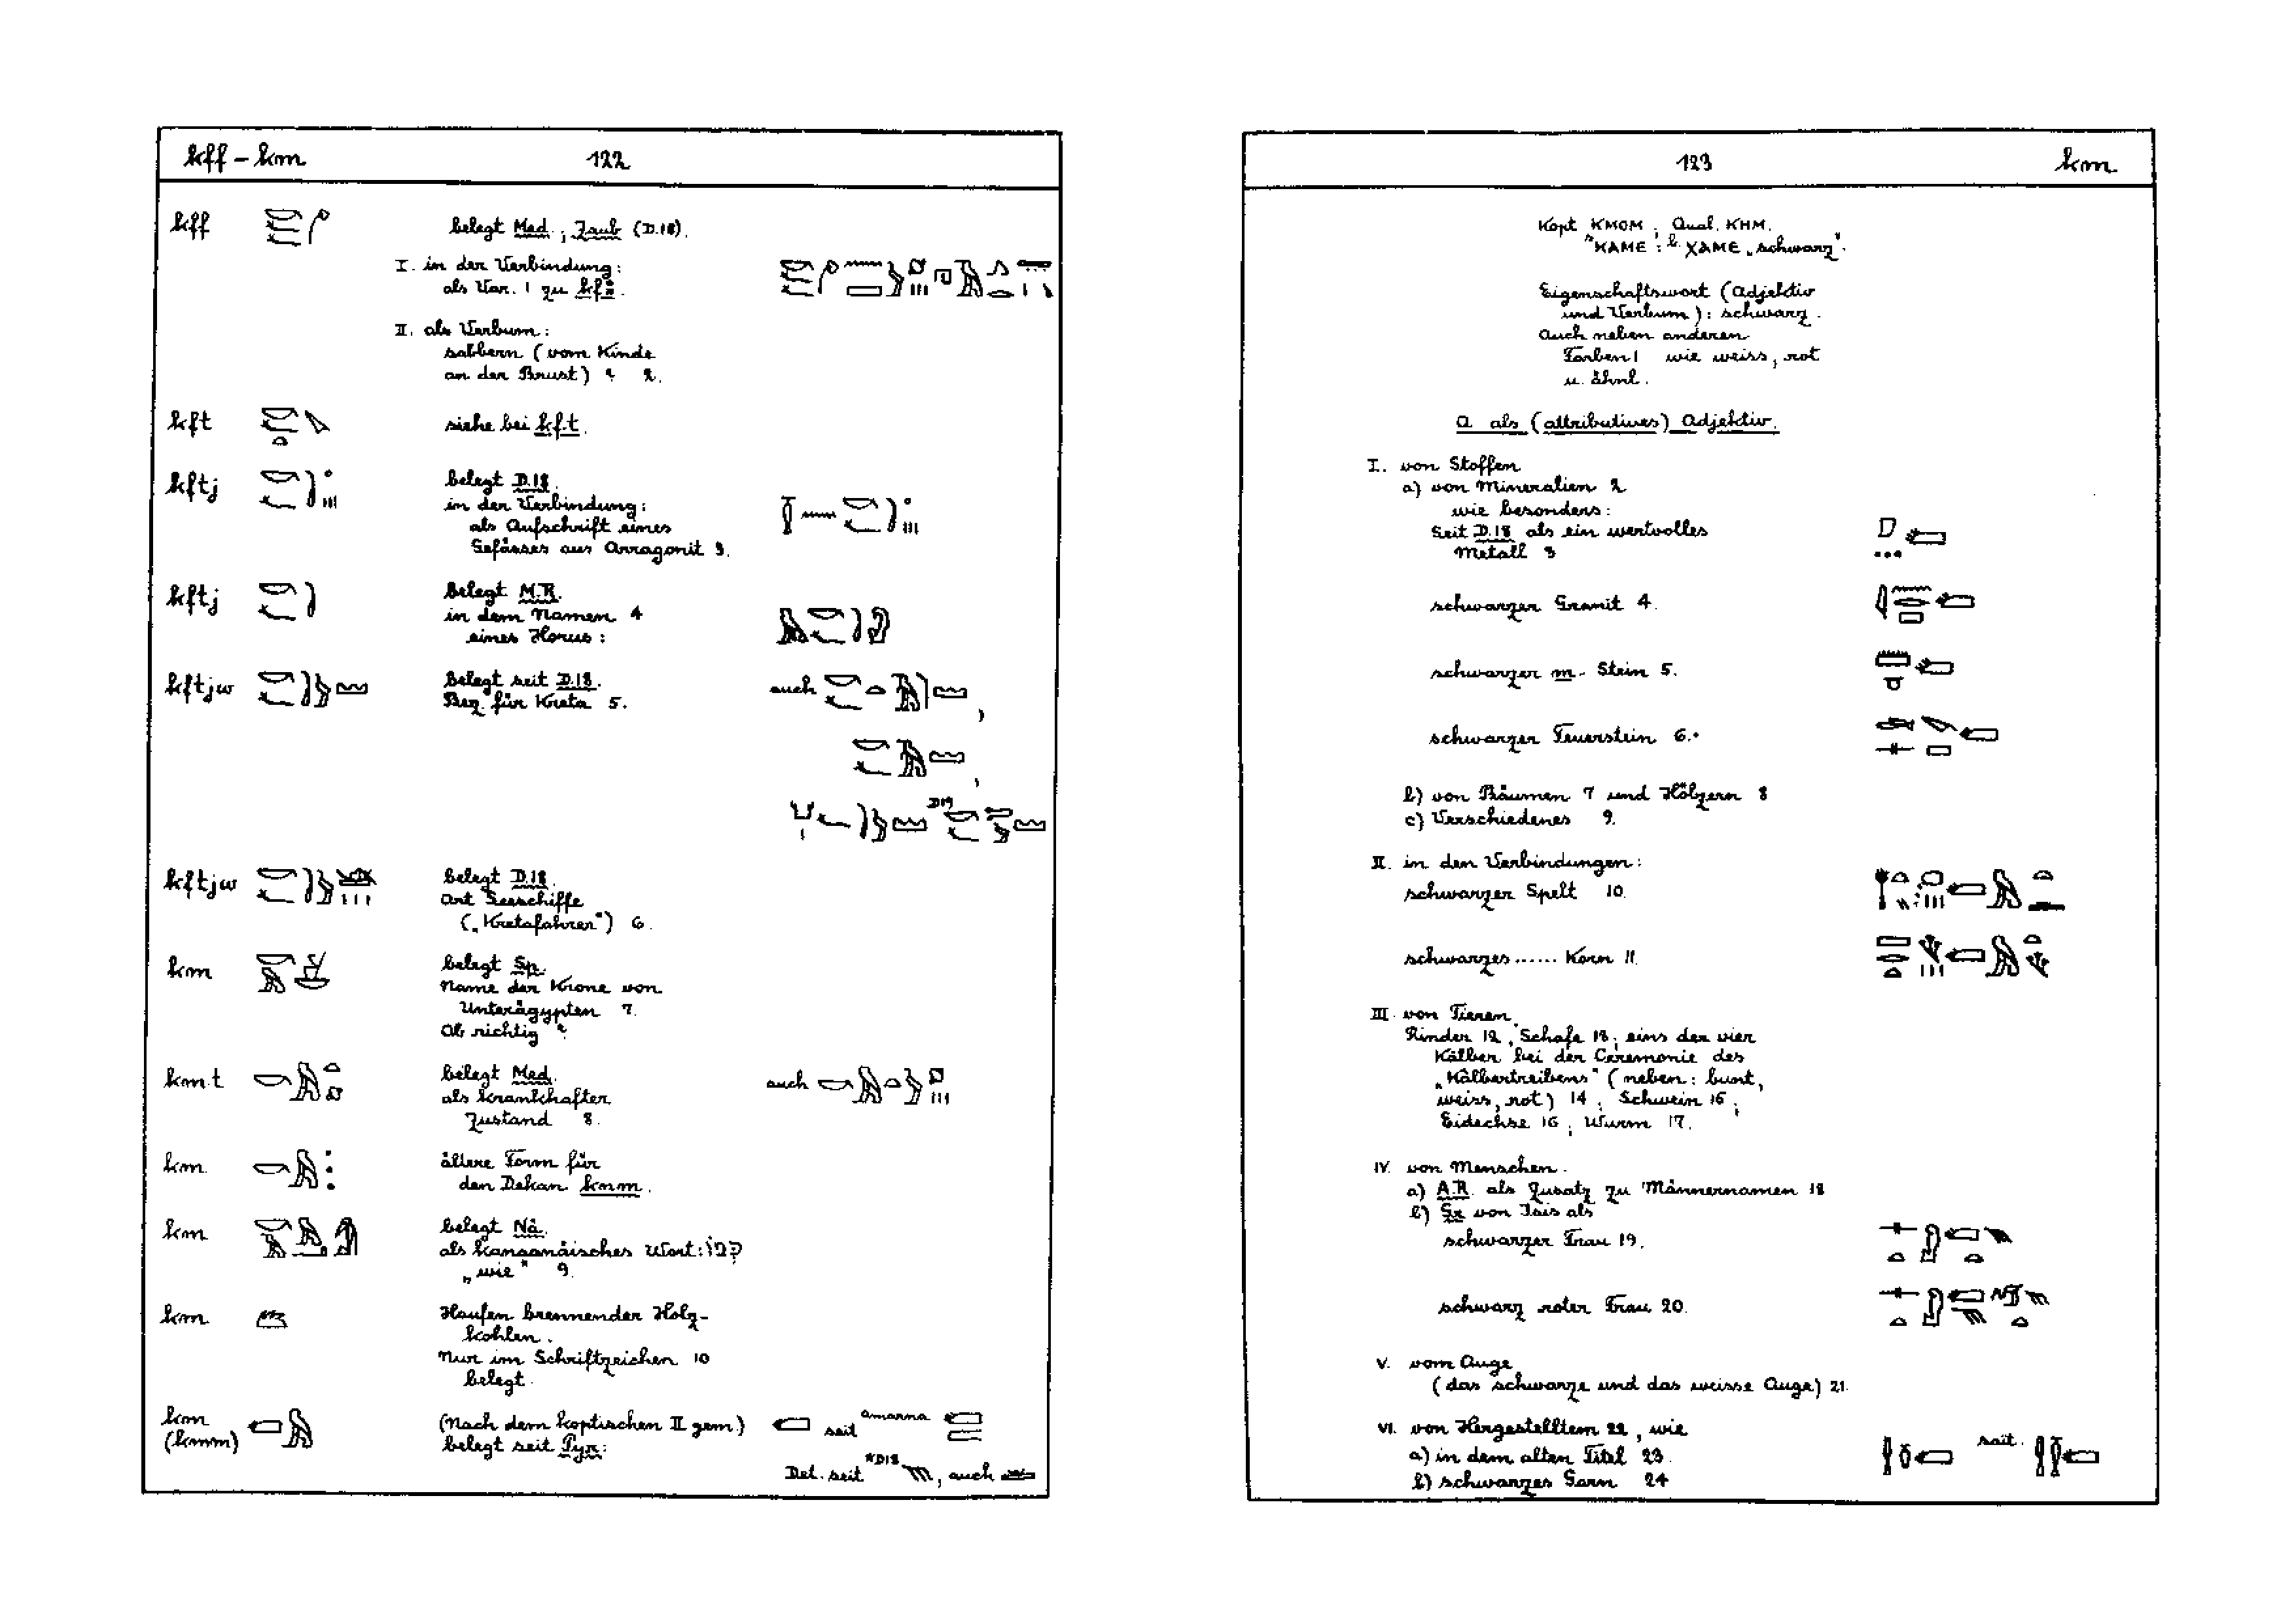 kff – km 122
kff belegt Med.; Zaub (D.18).
I. in der Verbindung:
als Var. 1 zu kfꜣ.
II. als Verbum:
sabbern (vom Kinde
an der Brust) ? 2.
kft siehe bei kf.t.
kftj belegt D.18.
in der Verbindung:
als Aufschrift eines
Gefässes aus Arragonit 3.
kftj belegt M.R.
in dem Namen 4
eines Horus:
kftjw belegt seit D.18. auch
Bez. für Kreta 5.
D19
kftjw belegt D.18.
Art Seeschiffe
(„Kretafahrer") 6.
km belegt Sp.
Name der Krone von
Unterägypten 7.
Ob richtig ?
km.t belegt Med. auch
als krankhafter
Zustand 8.
km ältere Form für
den Dekan knm.
km belegt Nä.
als kanaanäisches Wort:
„wie" 9.
km Haufen brennender Holz-
kohlen.
Nur im Schriftzeichen 10
belegt.
km (Nach dem koptischen II gem.) seit Amarna
(kmm) belegt seit Pyr:
Det. seit *D18, auch
123 km
Kopt KMOM; Qual. KHM.
KAME: b. XAME „schwarz".
Eigenschaftswort (Adjektiv
und Verbum): schwarz.
Auch neben anderen
Farben 1 wie weiss, rot
u. ähnl.
A als (attributives) Adjektiv.
I. von Stoffen
a) von Mineralien 2
wie besonders:
Seit D.18 als ein wertvolles
Metall 3
schwarzer Granit 4.
schwarzer m- Stein 5.
schwarzer Feuerstein 6.
b) von Bäumen 7 und Hölzern 8
c) Verschiedenes 9.
II. in den Verbindungen:
schwarzer Spelt 10.
schwarzes ...... Korn 11.
III. von Tieren
Rinder 12, Schafe 13; eins der vier
Kälber bei der Ceremonie des
„Kälbertreibens" (neben: bunt,
weiss, rot) 14; Schwein 15;
Eidechse 16; Wurm 17.
IV. von Menschen.
a) A.R. als Zusatz zu Männernamen 18
b) Gr. von Isis als
schwarzer Frau 19.
schwarz roter Frau 20.
V. vom Auge
(das schwarze und das weisse Auge) 21.
VI. von Hergestelltem 22, wie
a) in dem alten Titel 23. sait.
b) schwarzes Garn 24